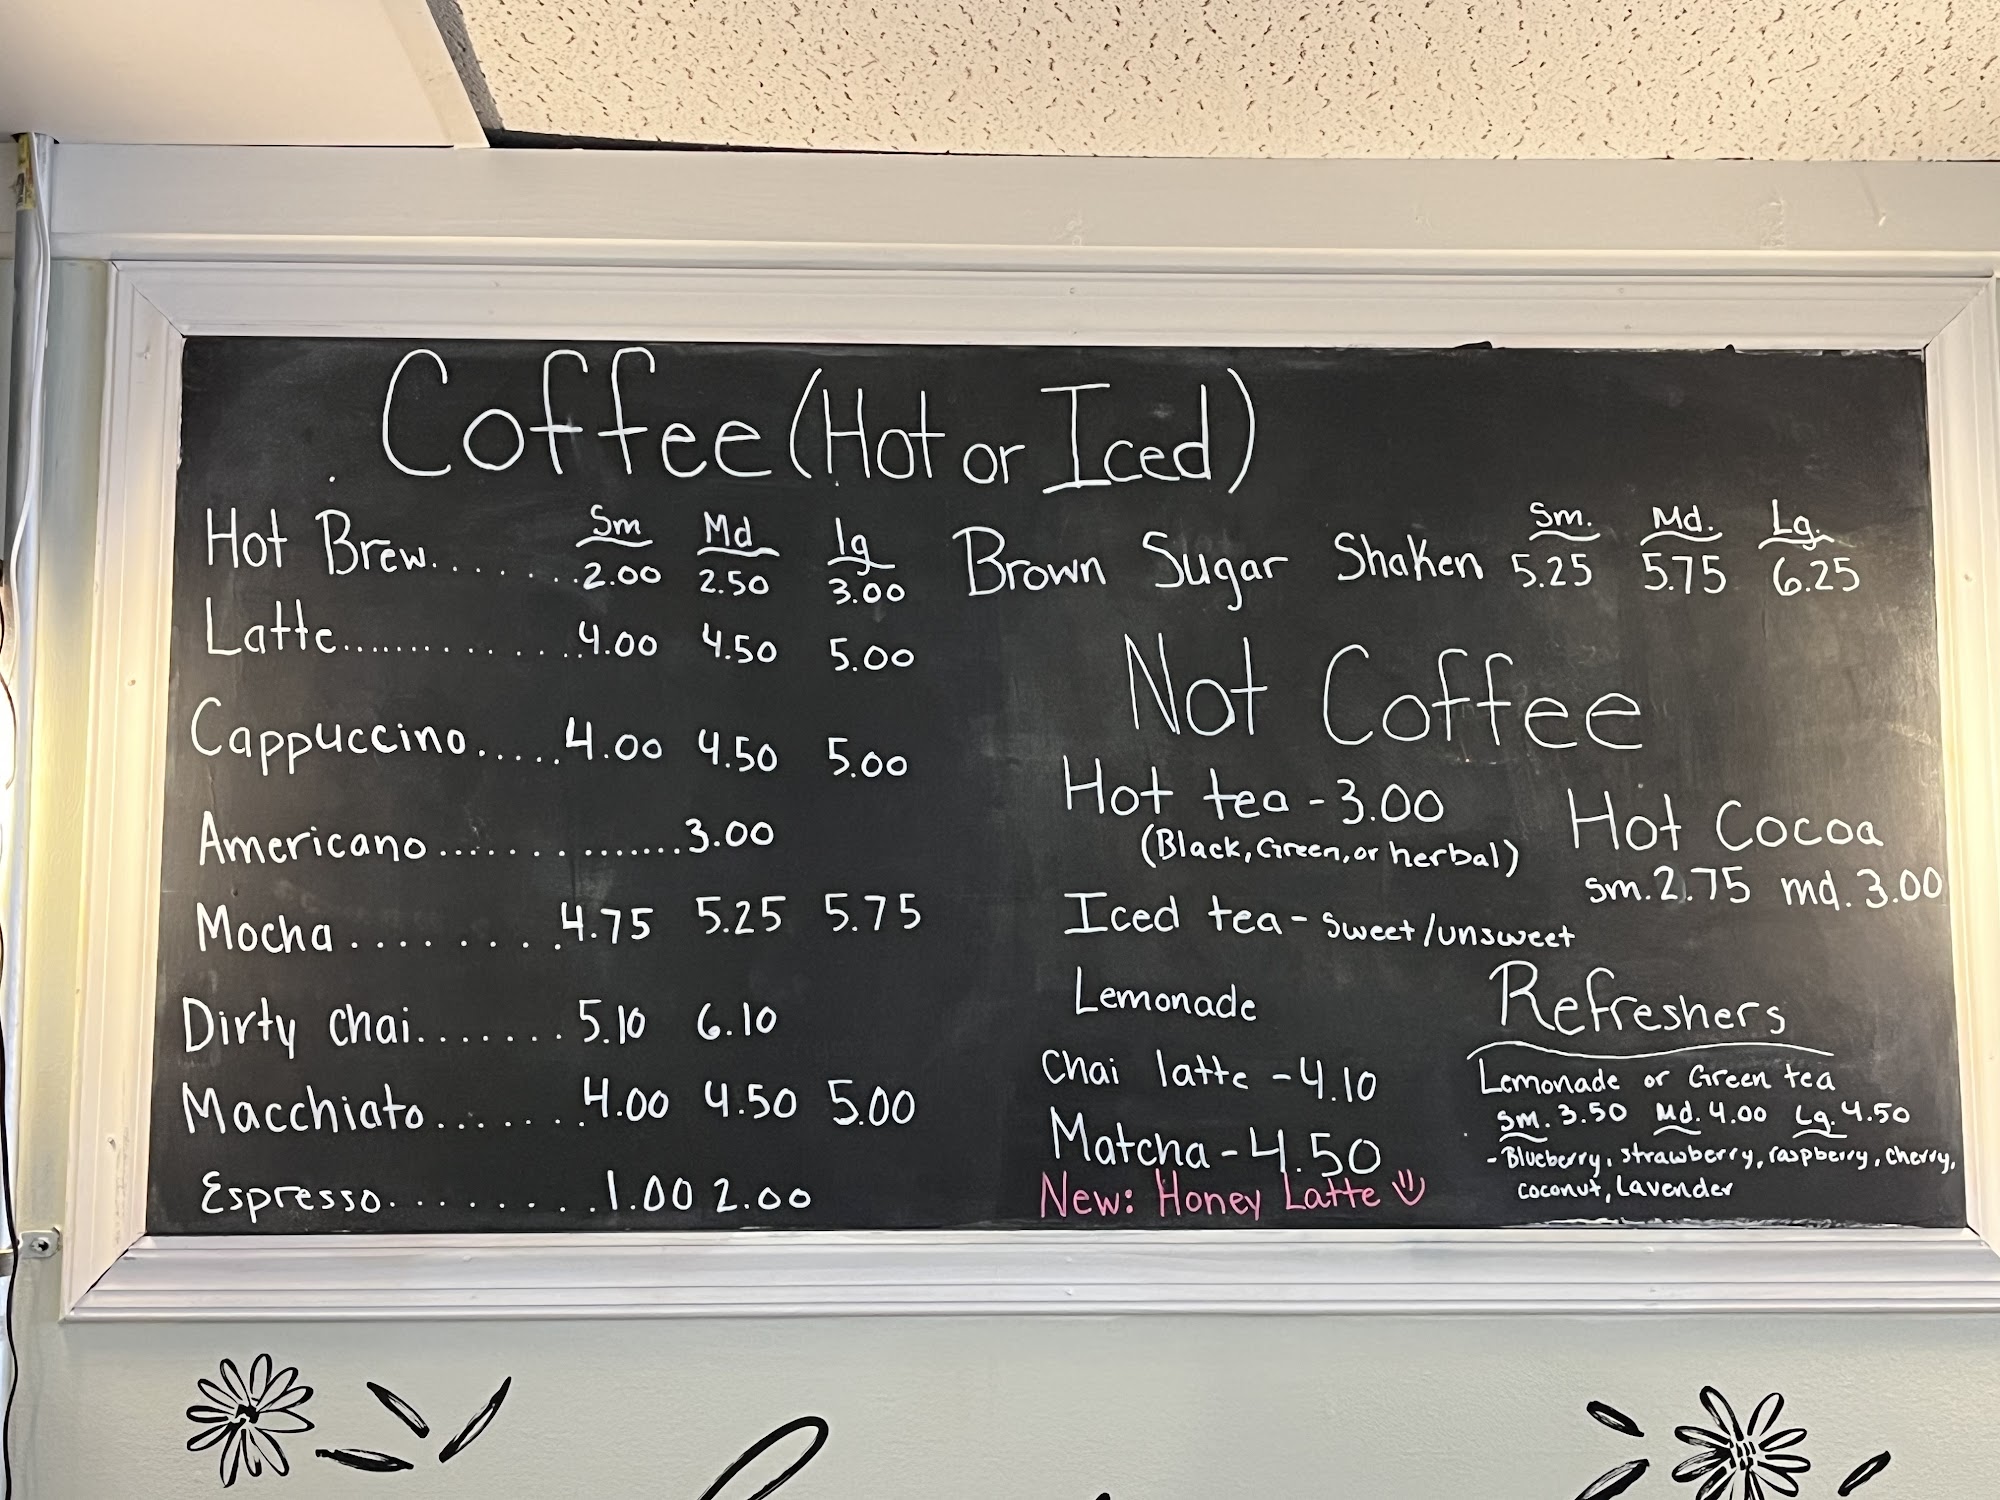 Coffee (Hot or Iced)
Sm Md lg
Hot Brew..........2.00 2.50 3.00
Latte................4.00 4.50 5.00
Cappuccino.....4.00 4.50 5.00
Americano...............3.00
Mocha.........4.75 5.25 5.75
Dirty chai.......5.10 6.10
Macchiato.......4.00 4.50 5.00
Espresso.........1.00 2.00
Sm. Md. Lg.
Brown Sugar Shaken 5.25 5.75 6.25
Not Coffee
Hot tea - 3.00
(Black, Green, or herbal)
Iced tea - sweet/unsweet
Lemonade
Chai latte - 4.10
Matcha - 4.50
New: Honey Latte
Hot Cocoa
sm. 2.75 md. 3.00
Refreshers
Lemonade or Green tea
Sm. 3.50 Md. 4.00 Lg. 4.50
- Blueberry, strawberry, raspberry, cherry,
coconut, Lavender